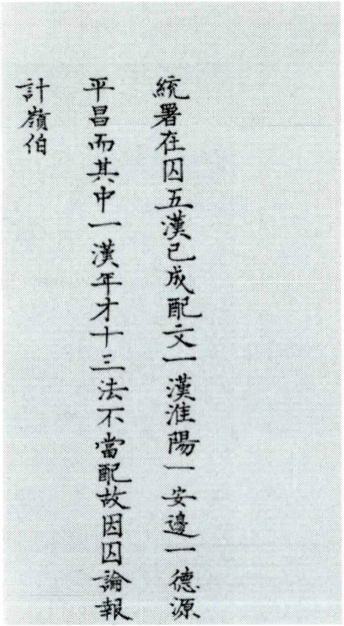 統署在囚五漢已成配文一漢淮陽一安邊一德源
平昌而其中一漢年才十三法不當配故因囚論報
計嶺伯